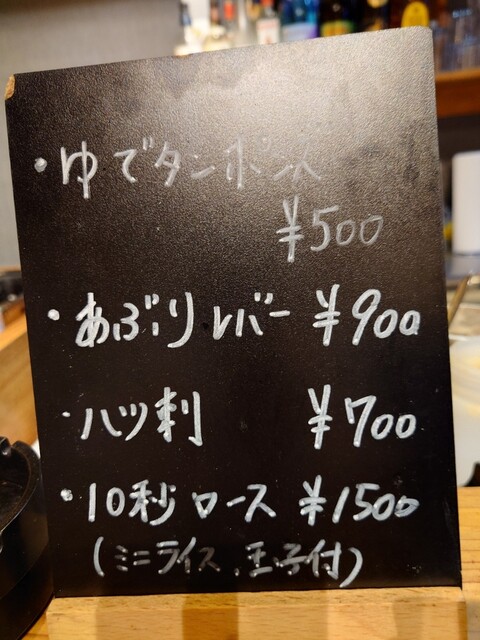 ・ゆでタンポン酢
¥500
・あぶりレバー ¥900
・ハツ刺 ¥700
・10秒ロース ¥1500
(ミニライス、玉子付)